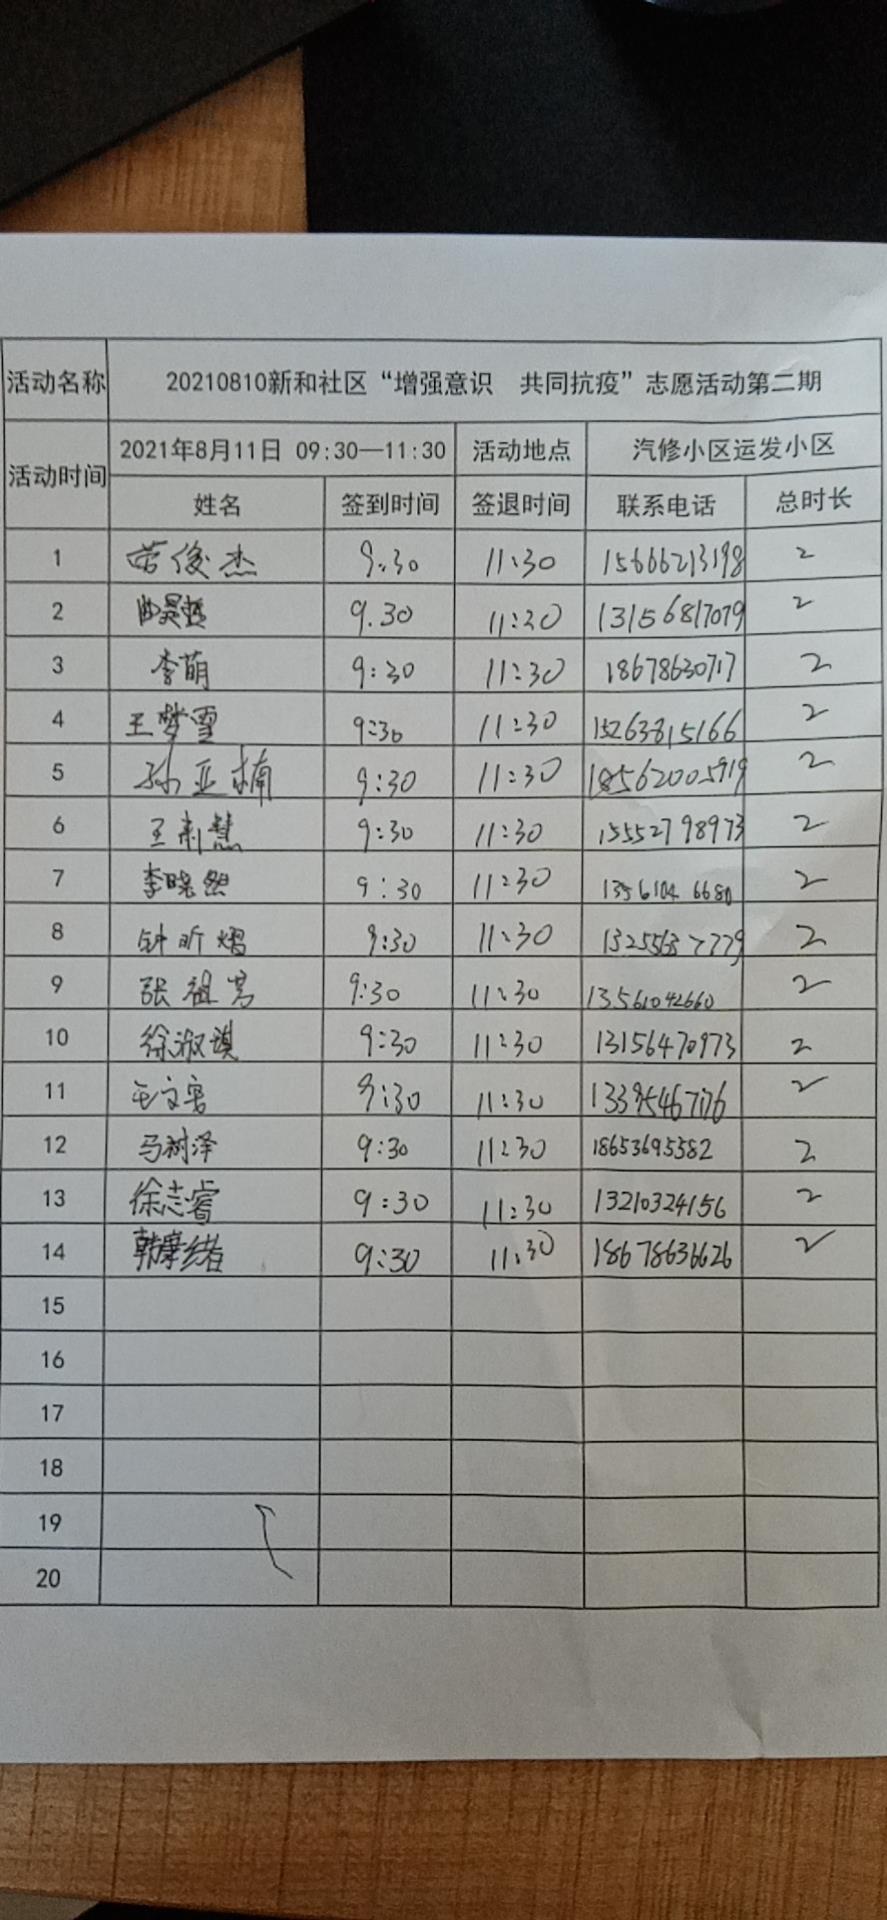 活动名称 20210810新和社区“增强意识 共同抗疫”志愿活动第二期
活动时间 2021年8月11日 09:30—11:30 活动地点 汽修小区运发小区
姓名 签到时间 签退时间 联系电话 总时长
1 俊杰 9:30 11:30 15666213198 2
2 9.30 11:30 13156817079 2
3 李萌 9:30 11:30 18678630717 2
4 王梦雪 9:30 11:30 15263815166 2
5 孙亚楠 9:30 11:30 18562005919 2
6 王利慧 9:30 11:30 15552798973 2
7 李晓然 9:30 11:30 13561046680 2
8 钟昕熠 9:30 11:30 13255637779 2
9 张祖 9:30 11:30 13561042660 2
10 徐淑琪 9:30 11:30 13156470973 2
11 9:30 11:30 2
12 马树泽 9:30 11:30 18653695582 2
13 徐志睿 9:30 11:30 13210324156 2
14 韩 9:30 11:30 18678636626 2
15
16
17
18
19
20